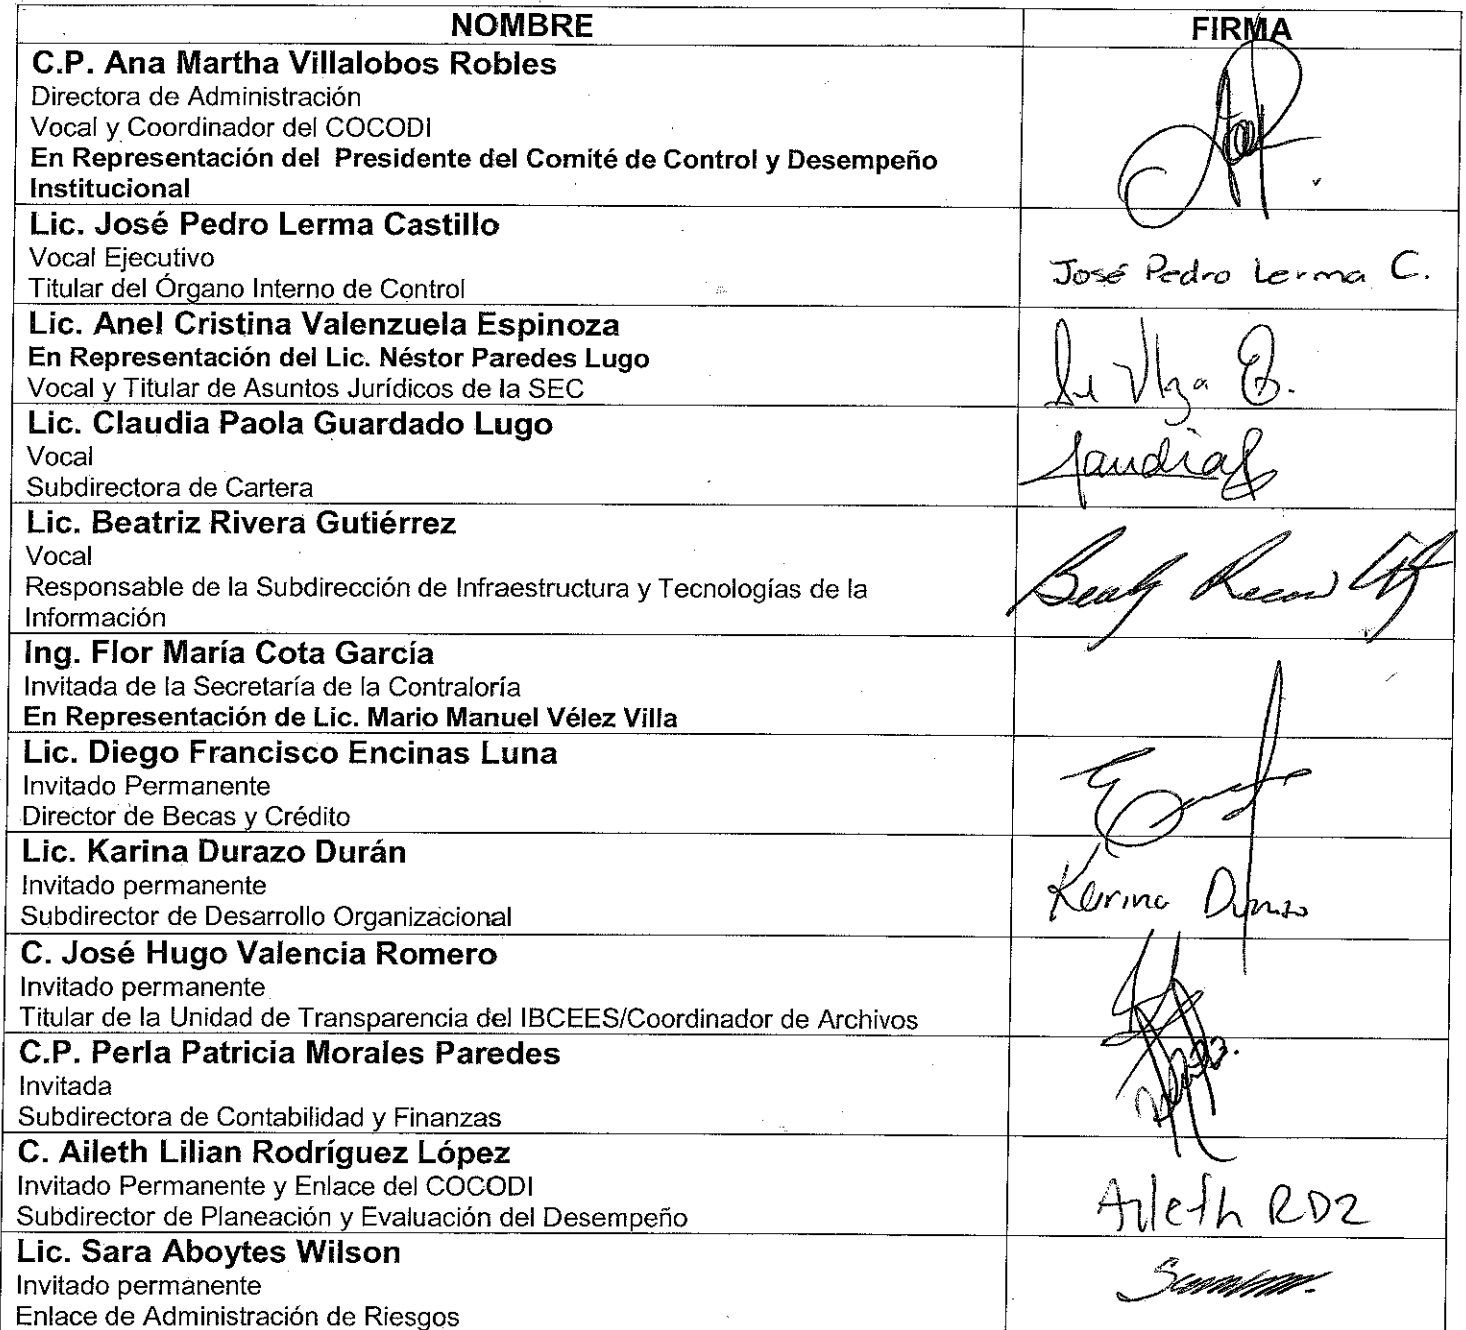 NOMBRE
FIRMA
C.P. Ana Martha Villalobos Robles
Directora de Administración
Vocal y Coordinador del COCODI
En Representación del Presidente del Comité de Control y Desempeño
Institucional
Lic. José Pedro Lerma Castillo
Vocal Ejecutivo
Titular del Órgano Interno de Control
José Pedro Lerma C.
Lic. Anel Cristina Valenzuela Espinoza
En Representación del Lic. Néstor Paredes Lugo
Vocal y Titular de Asuntos Jurídicos de la SEC
Lic. Claudia Paola Guardado Lugo
Vocal
Subdirectora de Cartera
Lic. Beatriz Rivera Gutiérrez
Vocal
Responsable de la Subdirección de Infraestructura y Tecnologías de la
Información
Ing. Flor María Cota García
Invitada de la Secretaría de la Contraloría
En Representación de Lic. Mario Manuel Vélez Villa
Lic. Diego Francisco Encinas Luna
Invitado Permanente
Director de Becas y Crédito
Lic. Karina Durazo Durán
Invitado permanente
Subdirector de Desarrollo Organizacional
Karina Durazo
C. José Hugo Valencia Romero
Invitado permanente
Titular de la Unidad de Transparencia del IBCEES/Coordinador de Archivos
C.P. Perla Patricia Morales Paredes
Invitada
Subdirectora de Contabilidad y Finanzas
C. Aileth Lilian Rodríguez López
Invitado Permanente y Enlace del COCODI
Subdirector de Planeación y Evaluación del Desempeño
Aileth RDZ
Lic. Sara Aboytes Wilson
Invitado permanente
Enlace de Administración de Riesgos